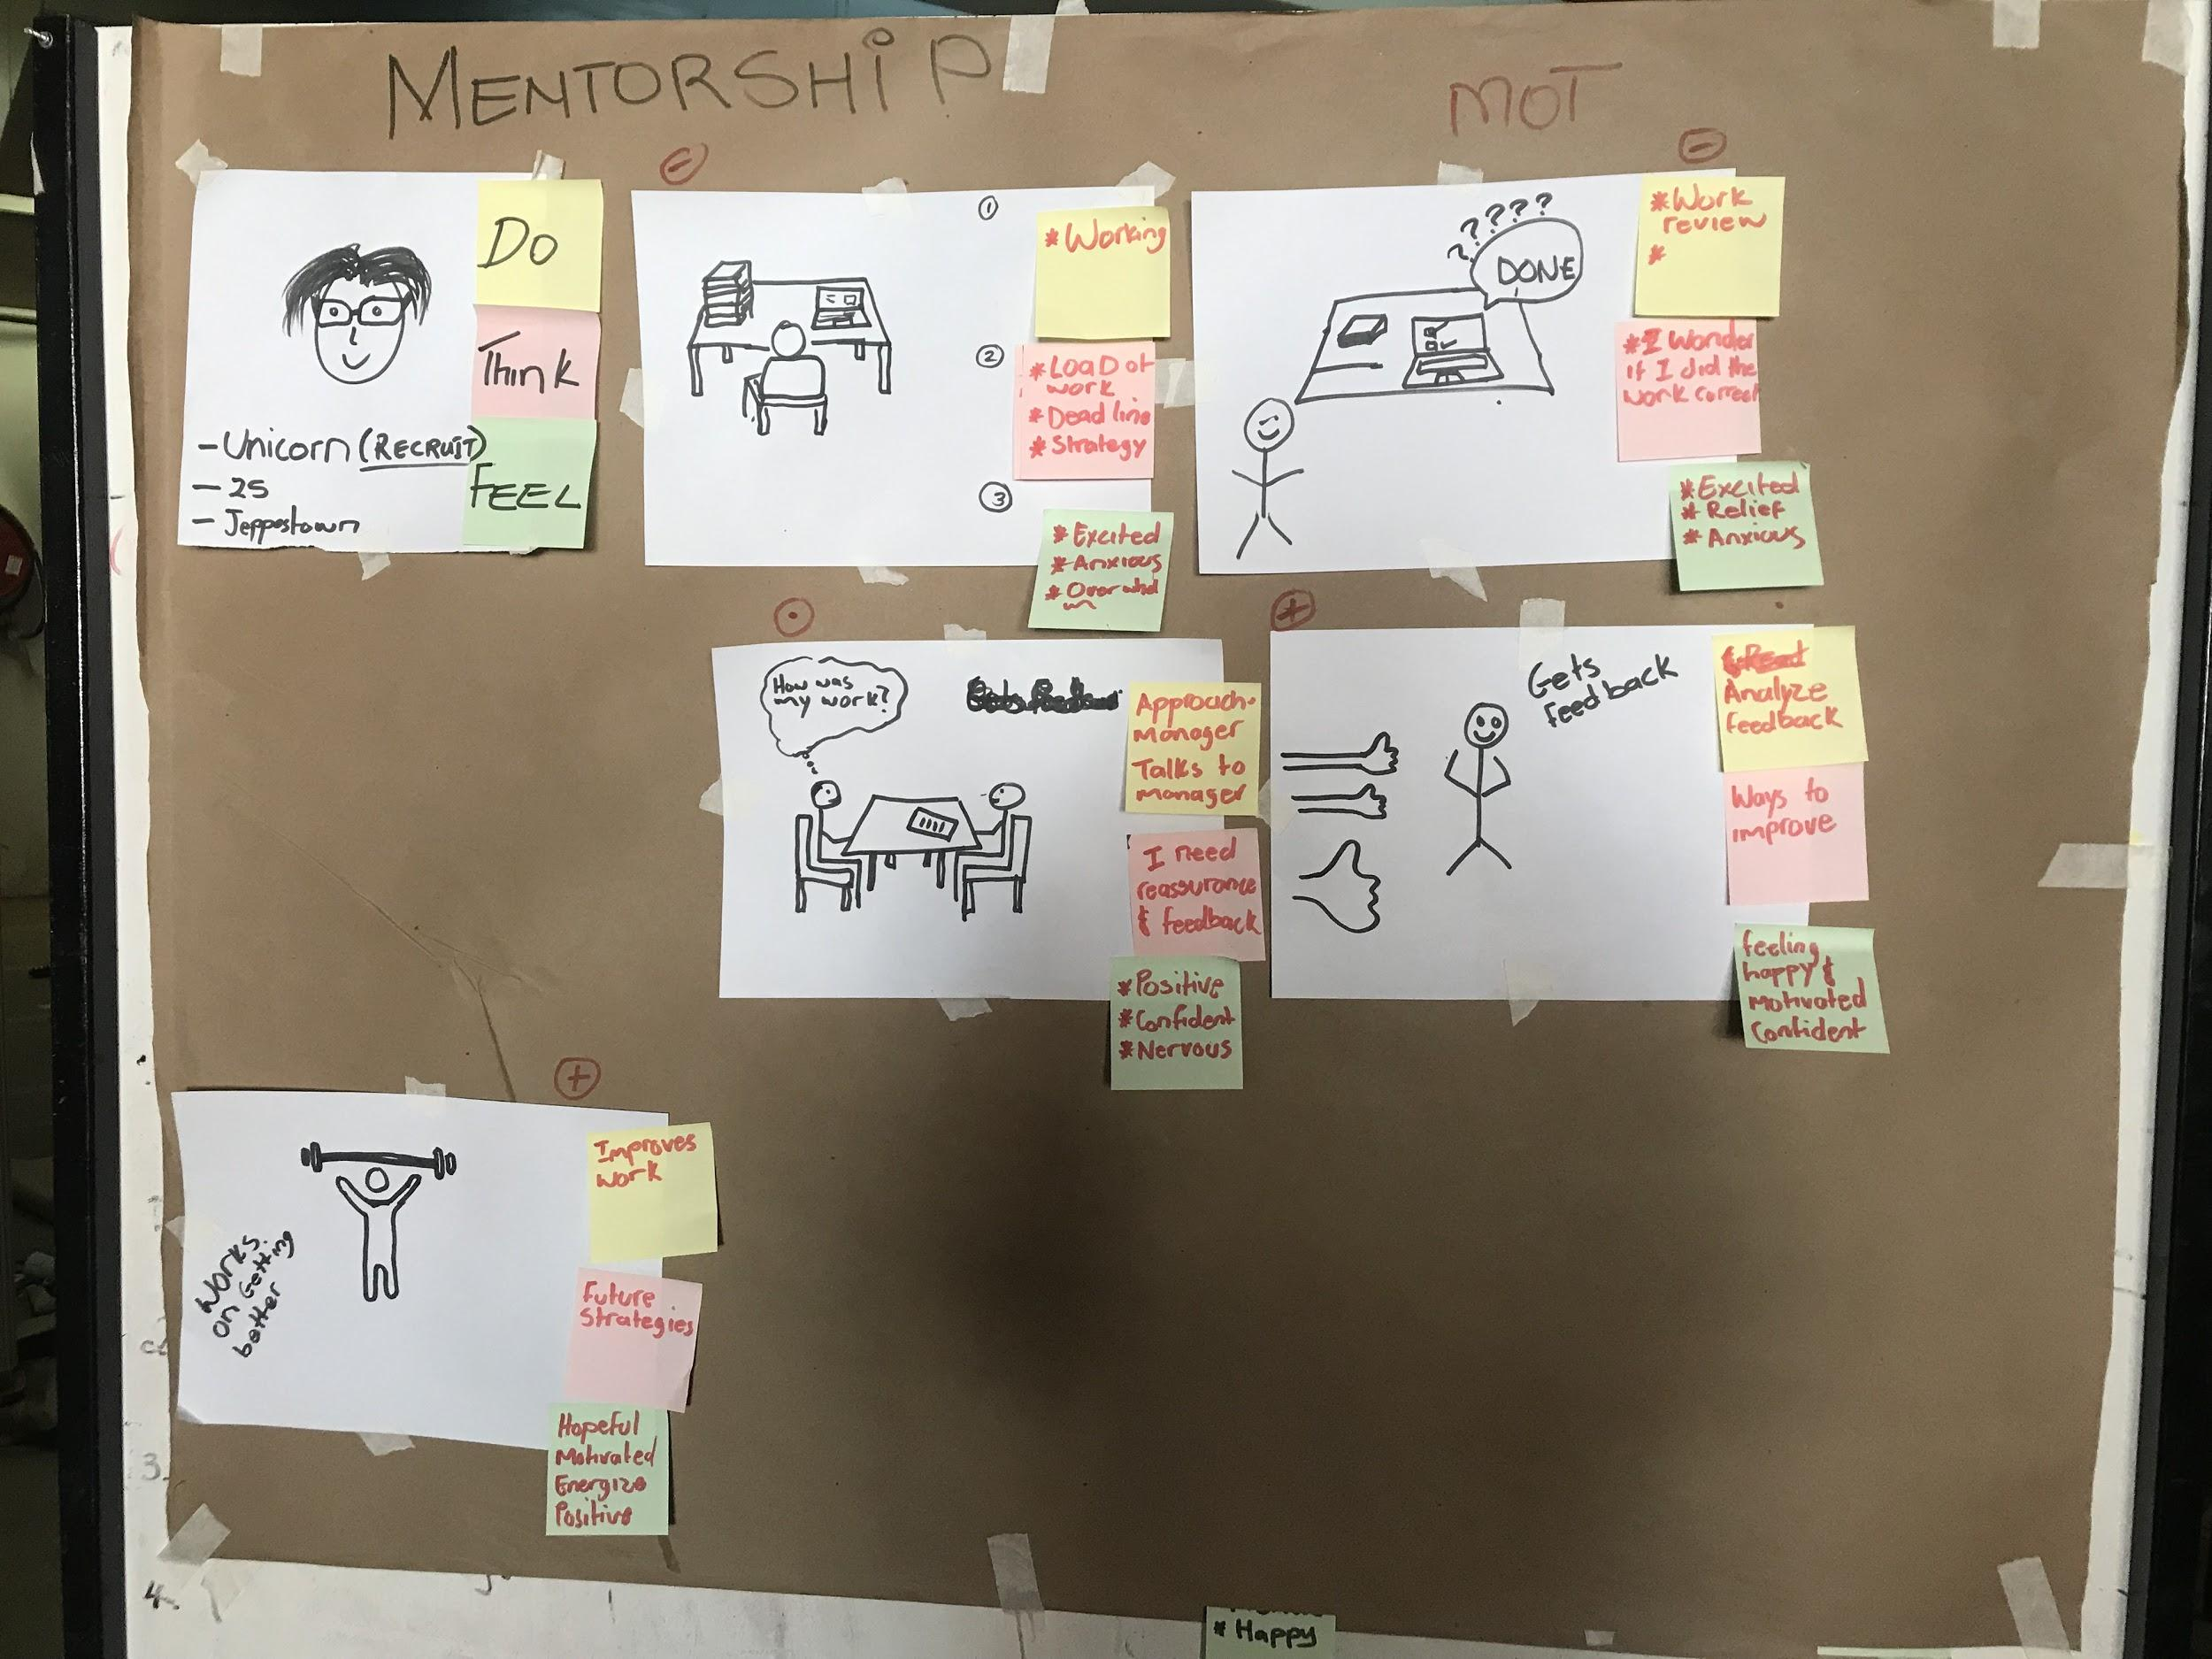 MENTORSHiP
MOT
Do
Think
FEEL
- Unicorn (RECRUIT)
- 25
- Jeppestown
①
* Working
②
* LoaD of
work
* Deadline
* Strategy
③
* Excited
* Anxious
* Overwhel
m
?????
DONE
* Work
review
*
* I Wonder
if I did the
work correct
* Excited
* Relief
* Anxious
How was
my work?
Approach-
Manager
Talks to
manager
I need
reassurance
& feedback
* Positive
* Confident
* Nervous
Gets
feedback
Analyze
feedback
Ways to
improve
feeling
happy &
Motivated
Confident
Works
on Getting
better
Improves
work
Future
Strategies
Hopeful
Motivated
Energize
Positive
3.
4.
* Happy